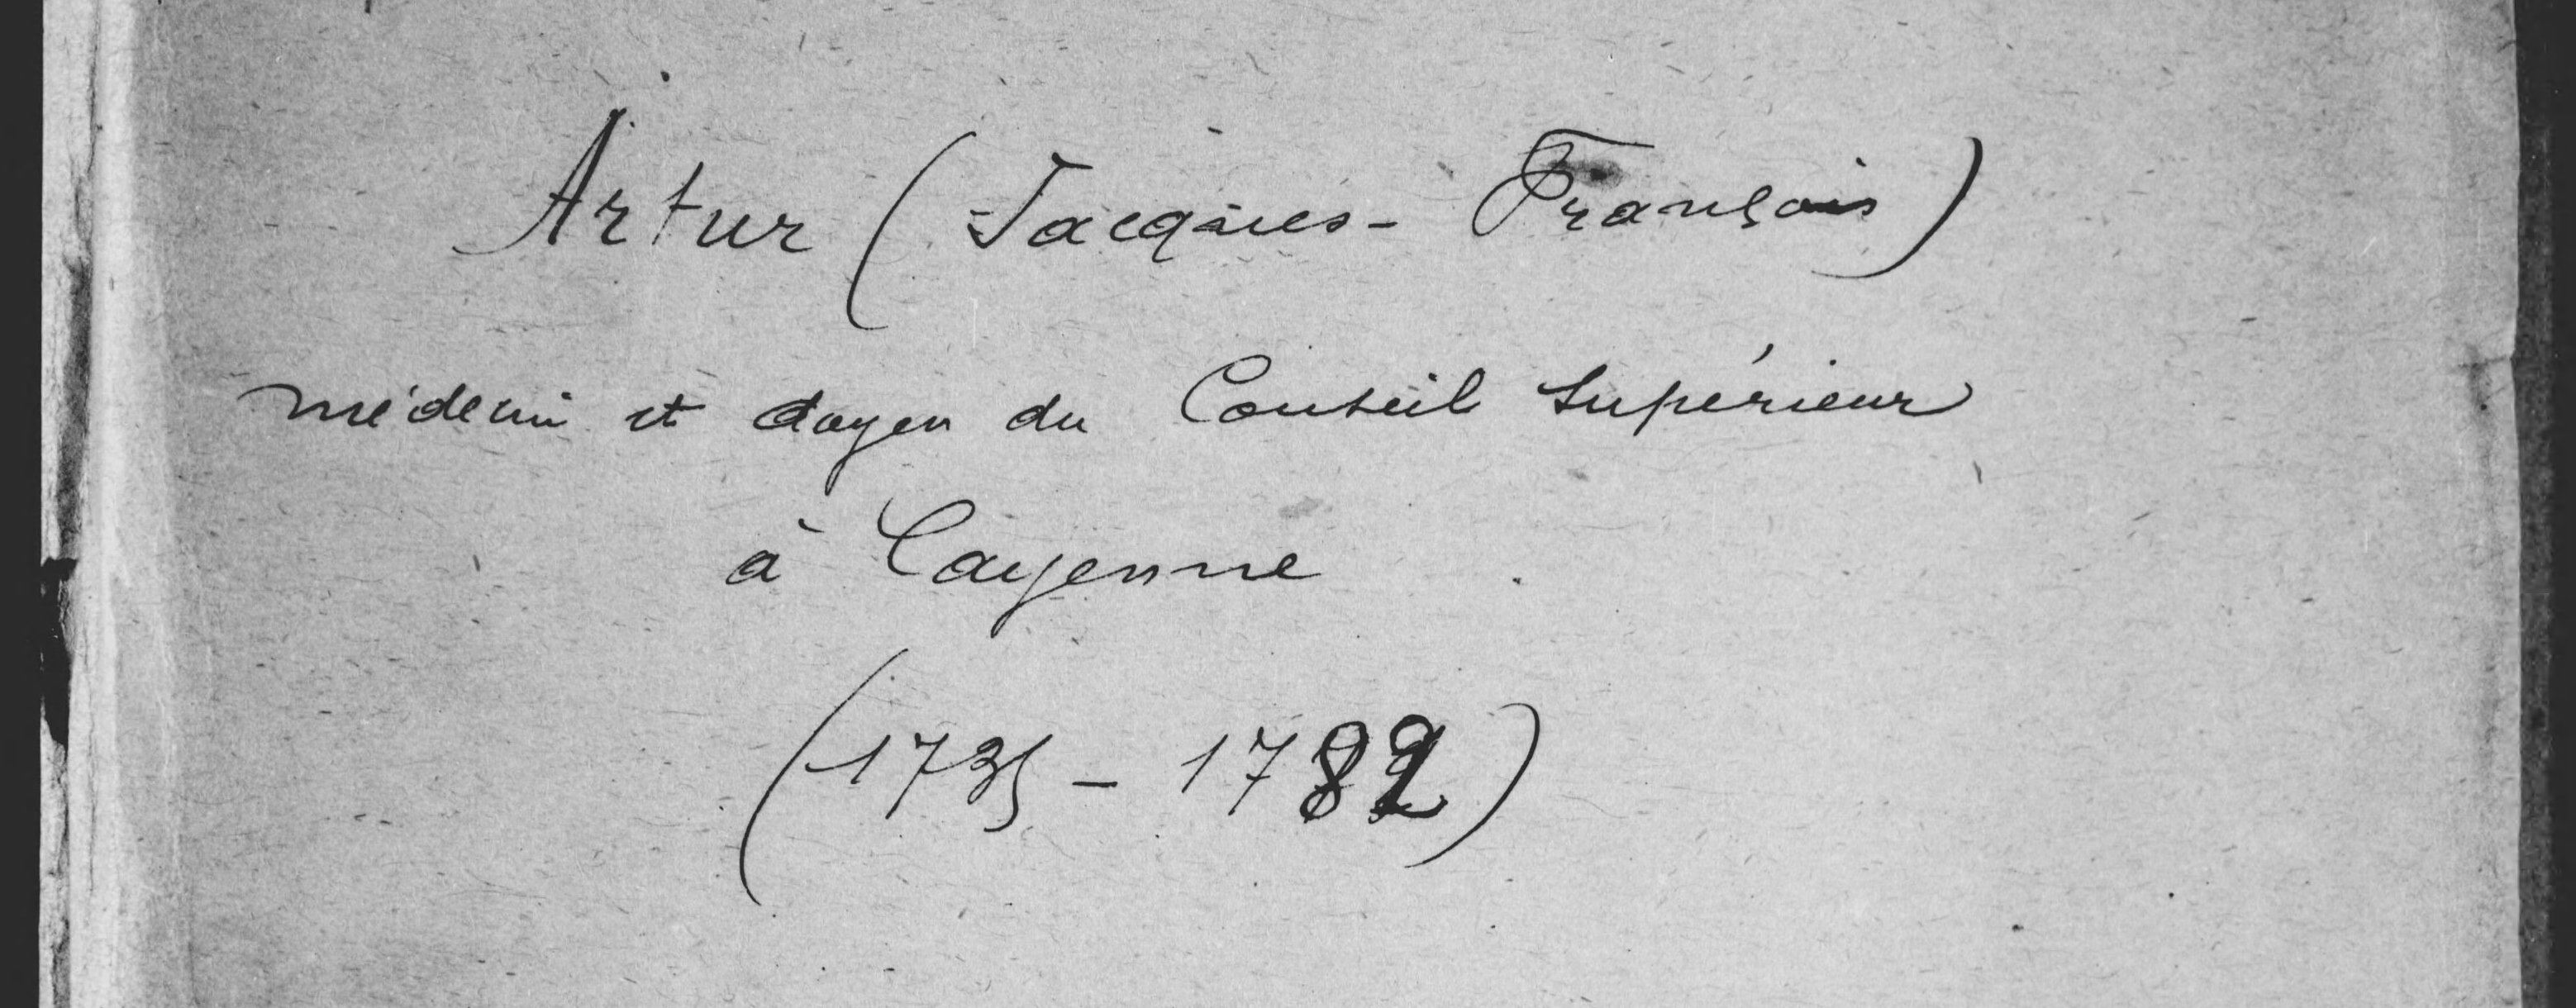 Artur (Jacques-François)
médecin et doyen du Conseil Supérieur
à Cayenne
(1735 - 1782)